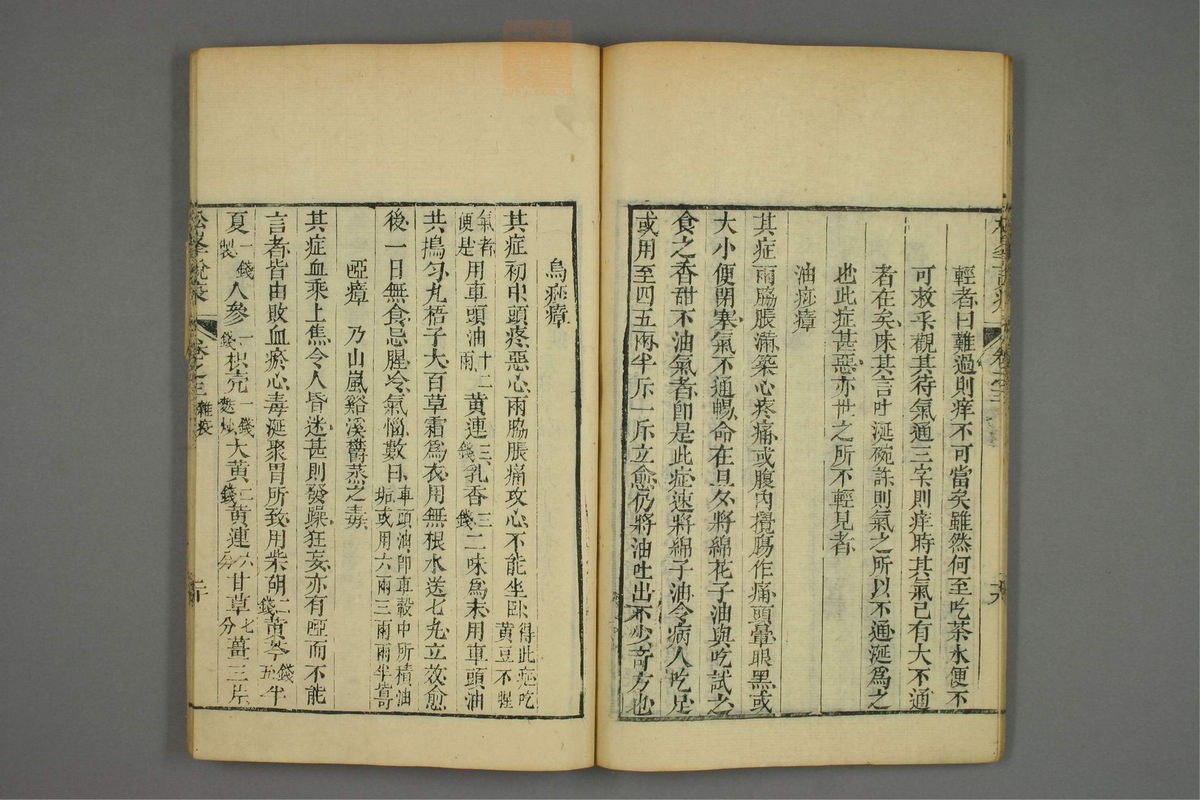 輕者曰難過則痒不可當矣雖然何至吃茶水便不
可救乎觀其待氣通三字則痒時其氣已有大不通
者在矣味其言吐涎碗許則氣之所以不通涎爲之
也此症甚惡亦世之所不輕見者
油痧瘴
其症兩脇脹滿築心疼痛或腹內攪腸作痛頭暈眼黑或
大小便閉塞氣不通暢命在旦夕將綿花子油與吃試之
食之香甜不油氣者卽是此症速將綿子油令病人吃足
或用至四五兩半斤一斤立愈仍將油吐出不少奇方也
烏痧瘴
其症初中頭疼惡心兩脇脹痛攻心不能坐臥得此症吃黃豆不腥
氣者便是用車頭油十二兩黃連三錢乳香三錢二味爲末用車頭油
共搗勻丸梧子大百草霜爲衣用無根水送七丸立效愈
後一日無食忌腥冷氣惱數日車頭油卽車轂中所積油垢或用六兩三兩兩半
啞瘴 乃山嵐谿溪欝蒸之毒
其症血乘上焦令人昏迷甚則發躁狂妄亦有啞而不能
言者皆由敗血瘀心毒涎聚胃所致用柴胡二錢黃芩錢五半
夏一錢製人參一錢枳壳一錢麩炒大黃二錢黃連六分甘草七分薑三片
松峯說疫 卷之三 雜疫 二十